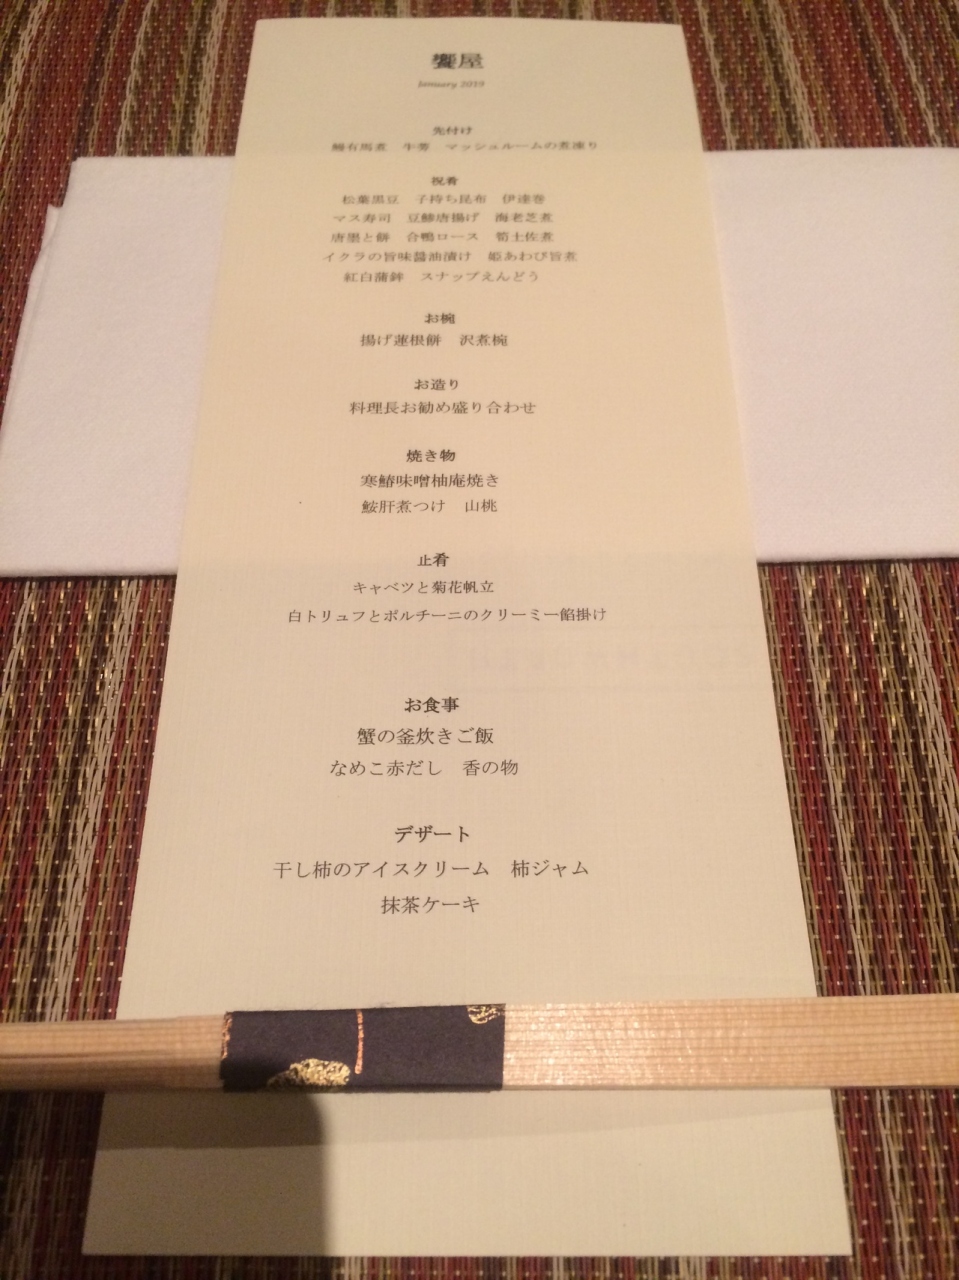 饗屋
January 2019
先付け
鰻有馬煮　牛蒡　マッシュルームの煮凍り
祝肴
松葉黒豆　子持ち昆布　伊達巻
マス寿司　豆鯵唐揚げ　海老芝煮
唐墨と餅　合鴨ロース　筍土佐煮
イクラの旨味醤油漬け　姫あわび旨煮
紅白蒲鉾　スナップえんどう
お椀
揚げ蓮根餅　沢煮椀
お造り
料理長お勧め盛り合わせ
焼き物
寒鰆味噌柚庵焼き
鮟肝煮つけ　山桃
止肴
キャベツと菊花帆立
白トリュフとポルチーニのクリーミー餡掛け
お食事
蟹の釜炊きご飯
なめこ赤だし　香の物
デザート
干し柿のアイスクリーム　柿ジャム
抹茶ケーキ